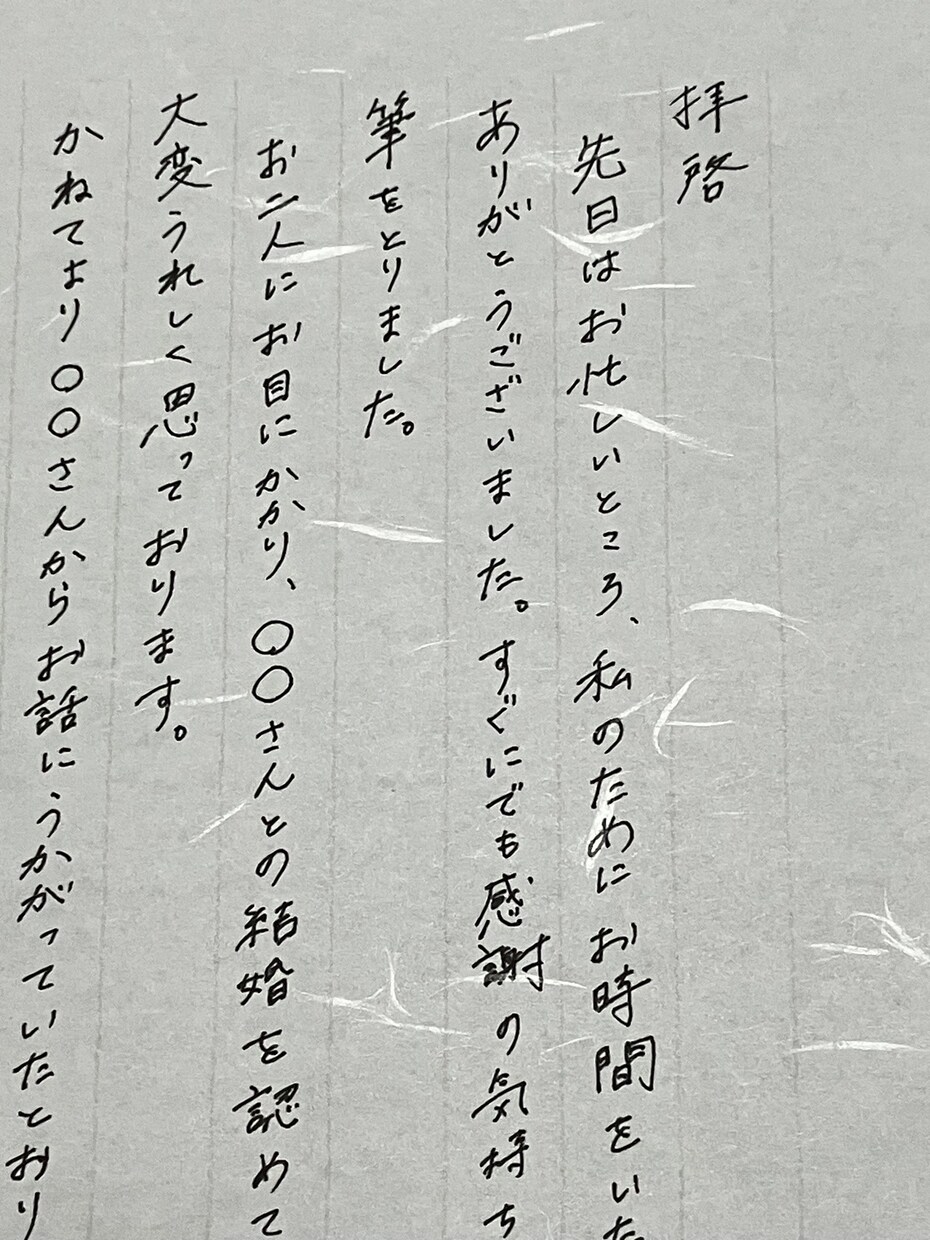 拝啓
先日はお忙しいところ、私のためにお時間をいた
ありがとうございました。すぐにでも感謝の気持ち
筆をとりました。
お二人にお目にかかり、〇〇さんとの結婚を認めて
大変うれしく思っております。
かねてより〇〇さんからお話にうかがっていたとおり